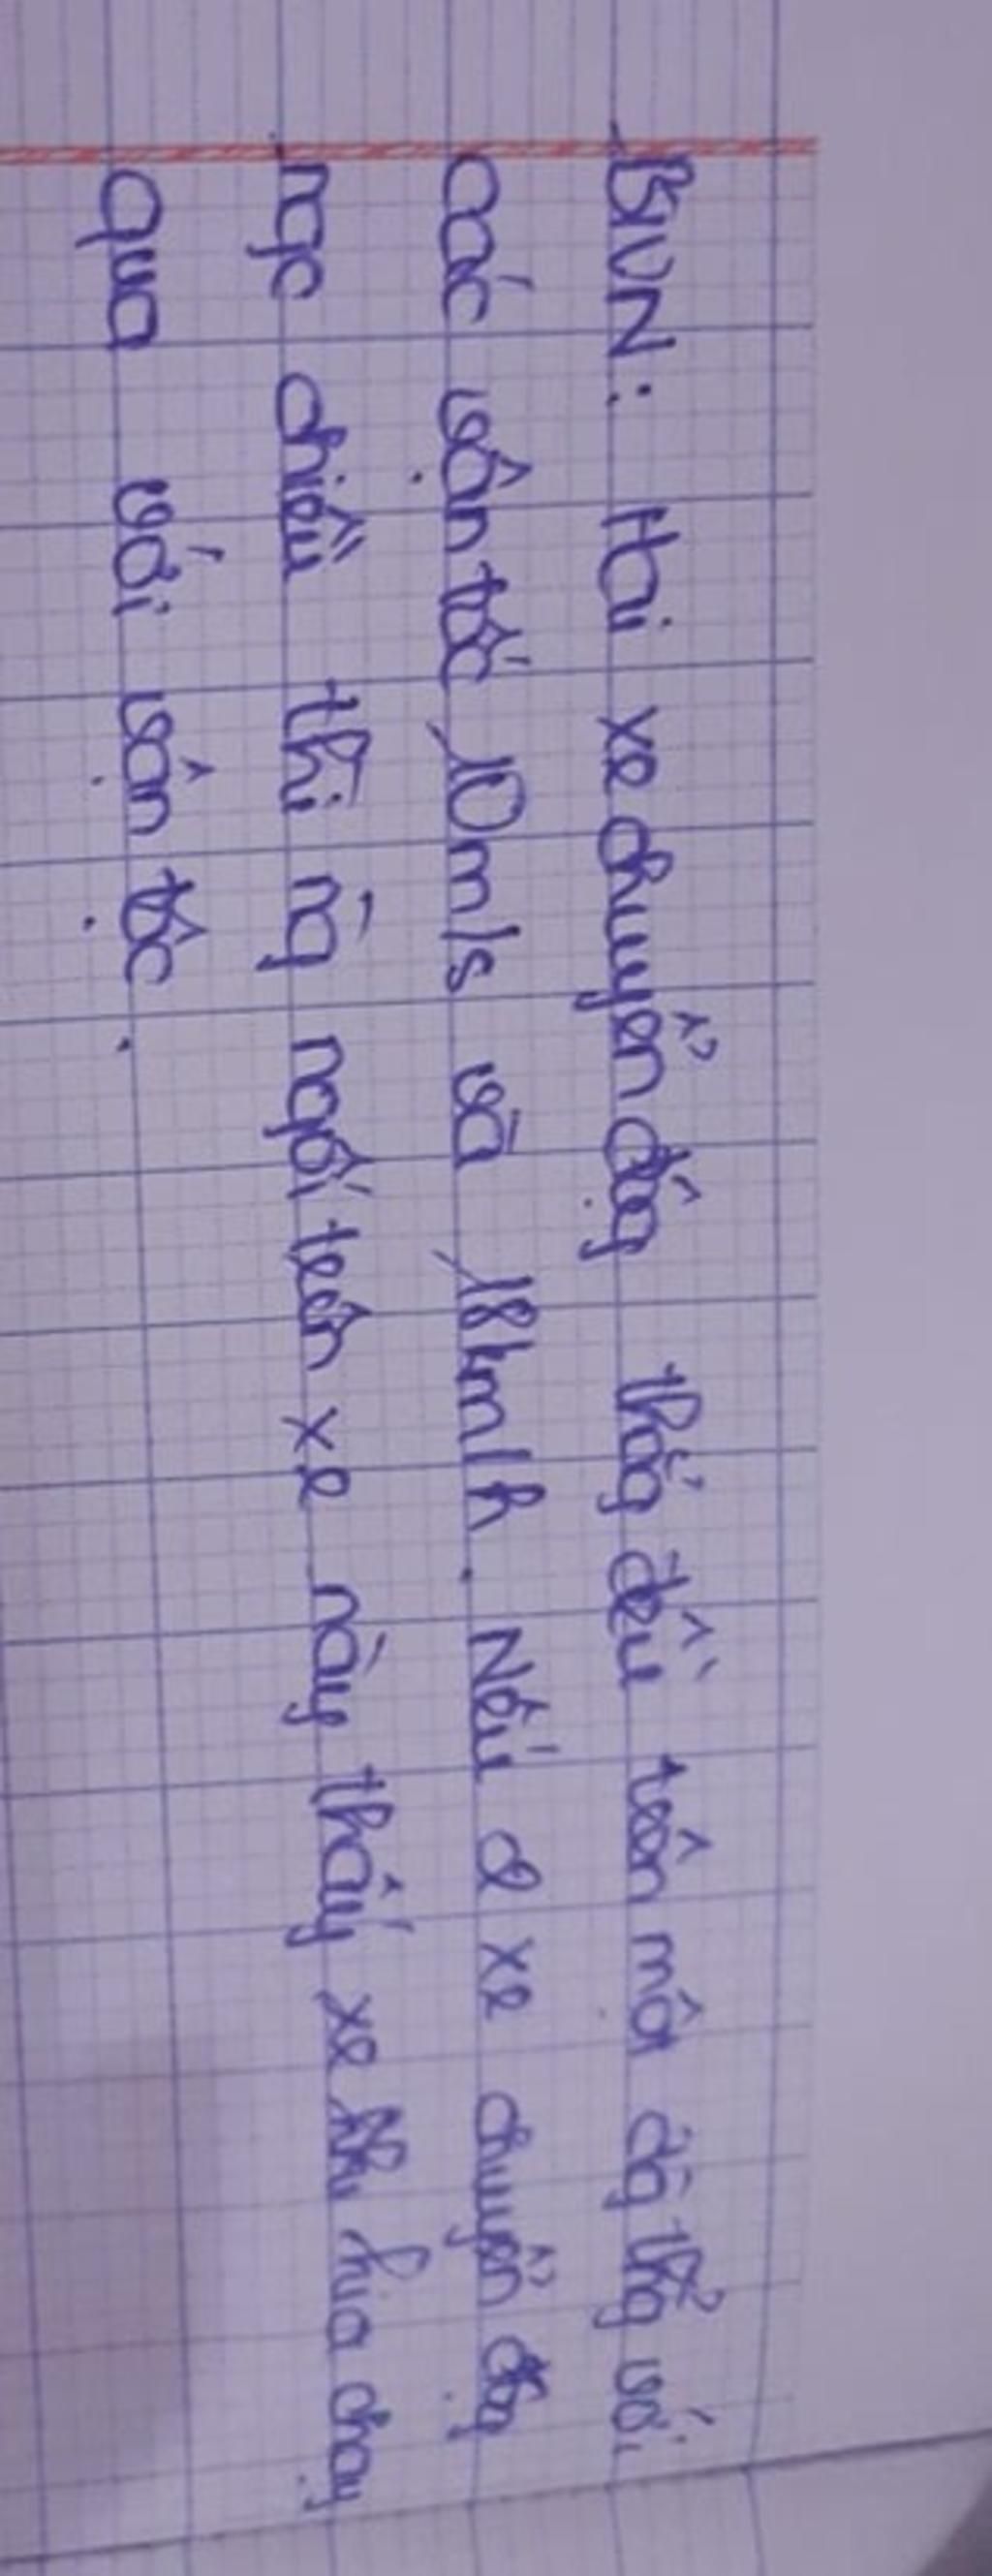 BTVN: Hai xe chuyển động thẳg đều trên một đg thg với
các vận tốc 10m/s và 18km/h. Nếu 2 xe chuyển độg
ngc chiều thì ng ngồi trên xe này thấy xe kia chạy
qua với vận tốc.